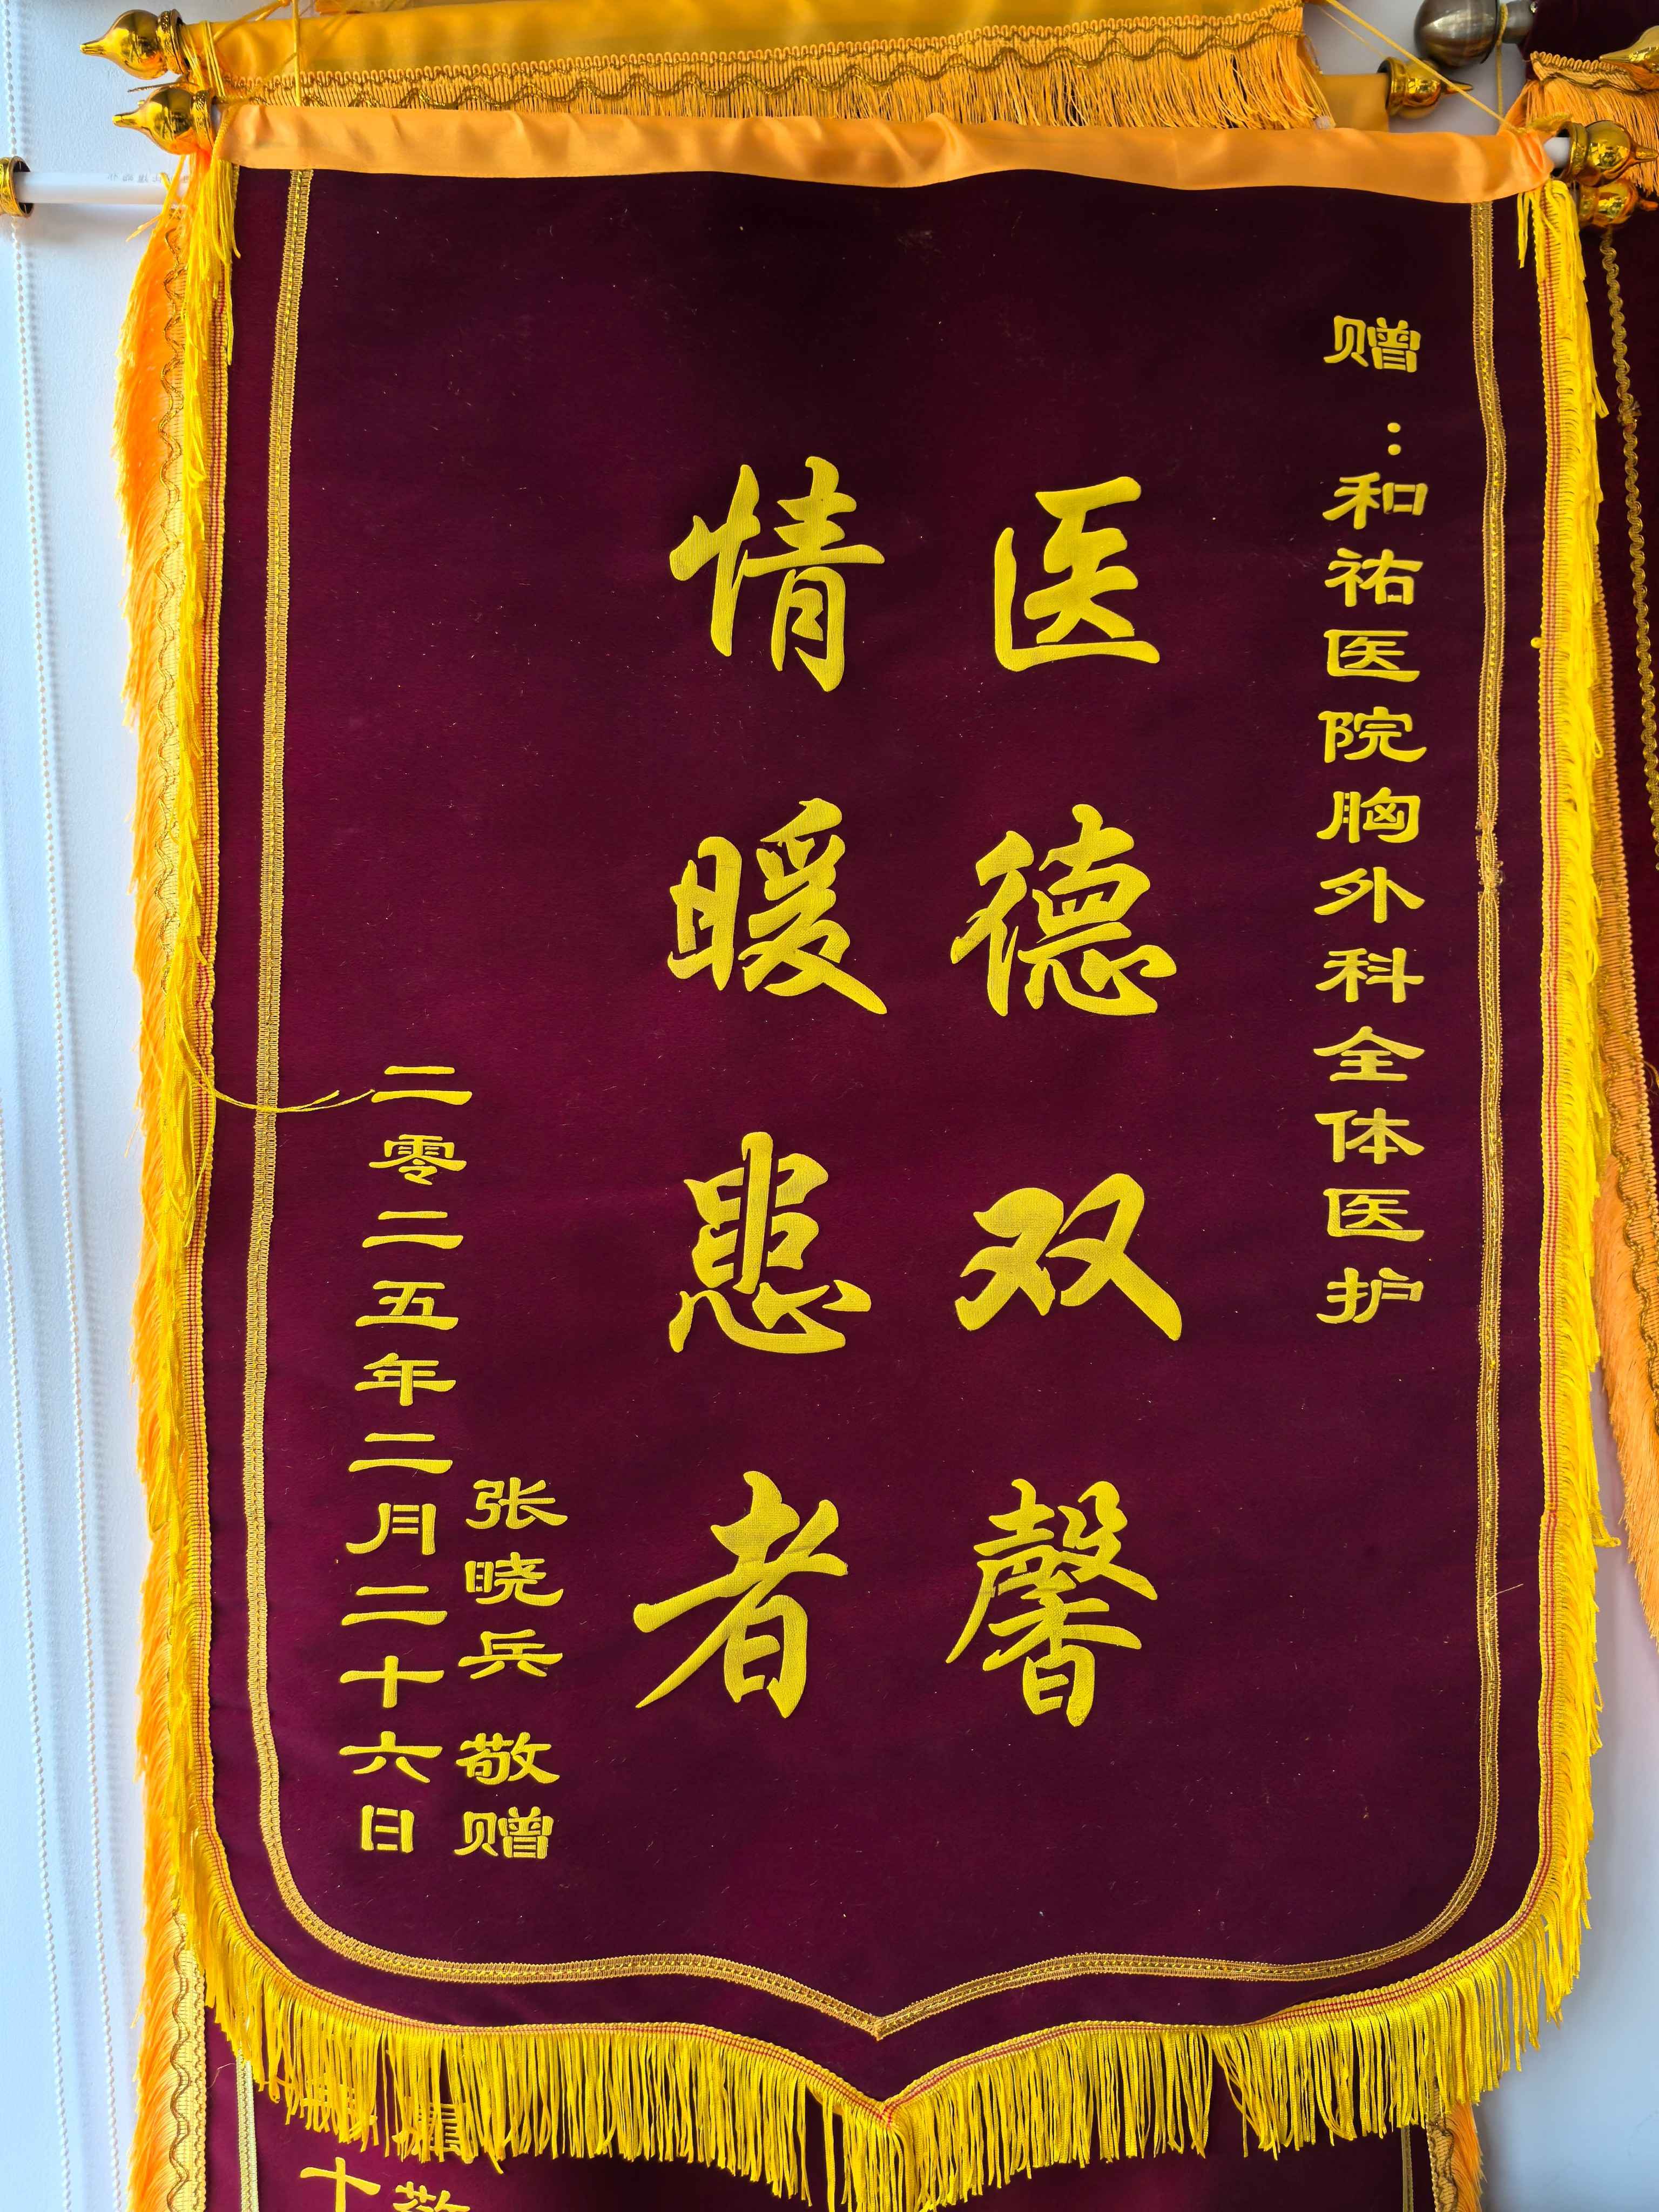 赠：和祐医院胸外科全体医护
医德双馨
情暖患者
张晓兵 敬赠
二零二五年二月二十六日
十
敬